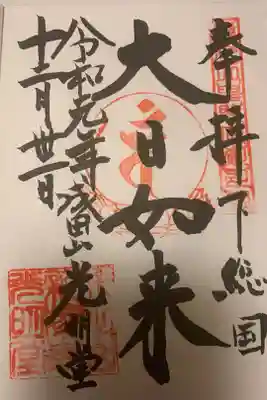 奉拝 下総国
大日如来
令和元年 成田山 光明堂
十二月廿一日